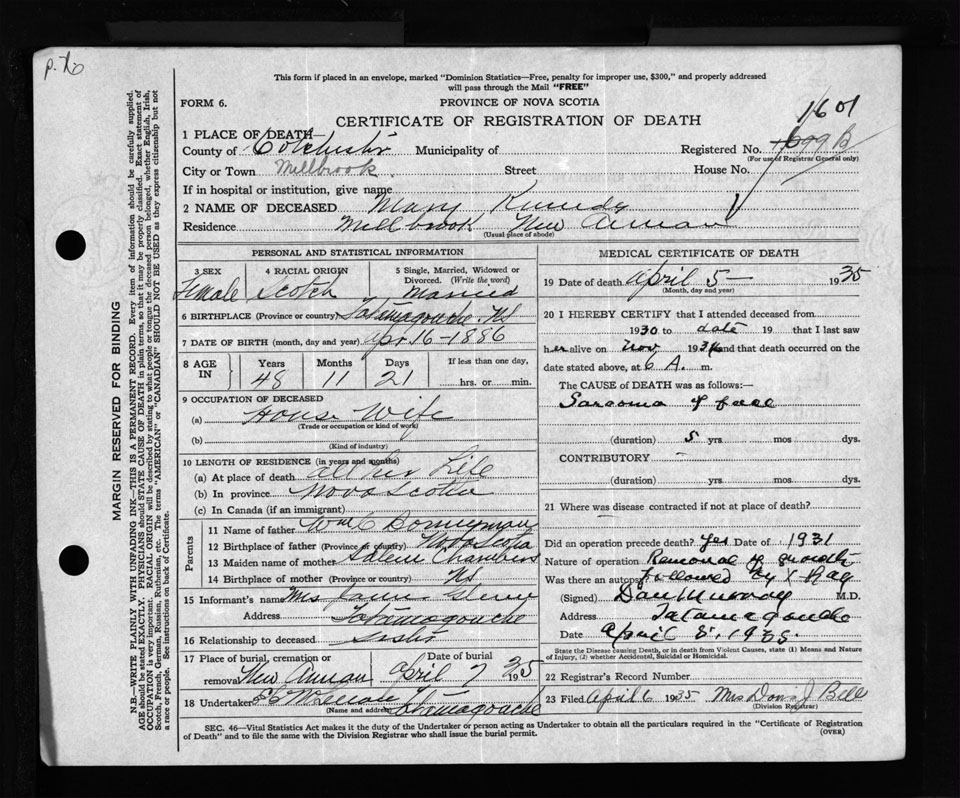 p. to
This form if placed in an envelope, marked "Dominion Statistics—Free, penalty for improper use, $300," and properly addressed
will pass through the Mail "FREE"
FORM 6.
PROVINCE OF NOVA SCOTIA
1601
CERTIFICATE OF REGISTRATION OF DEATH
1 PLACE OF DEATH—
County of Colchester Municipality of Registered No.
(For use of Registrar General only)
City or Town Millbrook. Street House No.
If in hospital or institution, give name
2 NAME OF DECEASED Mary
Residence Millbrook New Annan
(Usual place of abode)
PERSONAL AND STATISTICAL INFORMATION
3 SEX Female
4 RACIAL ORIGIN Scotch
5 Single, Married, Widowed or Divorced. (Write the word) Married
6 BIRTHPLACE (Province or country) Tatamagouche NS
7 DATE OF BIRTH (month, day and year) Apr 16-1886
8 AGE IN Years 48 Months 11 Days 21 If less than one day, hrs. or min.
9 OCCUPATION OF DECEASED
(a) House Wife
(Trade or occupation or kind of work)
(b)
(Kind of industry)
10 LENGTH OF RESIDENCE (in years and months)
(a) At place of death all her Life
(b) In province Nova Scotia
(c) In Canada (if an immigrant)
Parents
11 Name of father Wm C
12 Birthplace of father (Province or country) Nova Scotia
13 Maiden name of mother Chambers
14 Birthplace of mother (Province or country) NS
15 Informant's name Mrs
Address Tatamagouche
16 Relationship to deceased Sister
17 Place of burial, cremation or removal New Annan
Date of burial April 7 1935
18 Undertaker
(Name and address) Tatamagouche
MEDICAL CERTIFICATE OF DEATH
19 Date of death April 5— 1935
(Month, day and year)
20 I HEREBY CERTIFY that I attended deceased from
1930 to date 19 that I last saw
her alive on Nov 1934 and that death occurred on the
date stated above, at 6 A. m.
The CAUSE of DEATH was as follows:—
Sarcoma of face
(duration) 5 yrs mos dys.
CONTRIBUTORY —
(duration) yrs. mos dys.
21 Where was disease contracted if not at place of death?
Did an operation precede death? yes Date of 1931
Nature of operation Removal of growth
Was there an autopsy? followed by X Ray
(Signed) Dan Murray M.D.
Address Tatamagouche
Date April 5, 1935.
State the Disease causing Death, or in death from Violent Causes, state (1) Means and Nature
of Injury, (2) whether Accidental, Suicidal or Homicidal.
22 Registrar's Record No.
23 Filed April 6 1935 Mrs J Bell
(Division Registrar)
SEC. 46—Vital Statistics Act makes it the duty of the Undertaker or person acting as Undertaker to obtain all the particulars required in the "Certificate of Registration
of Death" and to file the same with the Division Registrar who shall issue the burial permit.
(OVER)
MARGIN RESERVED FOR BINDING
N.B.—WRITE PLAINLY WITH UNFADING INK—THIS IS A PERMANENT RECORD. Every item of information should be carefully supplied.
AGE should be stated EXACTLY. PHYSICIANS should STATE CAUSE OF DEATH in plain terms, so that it may be properly classified. Exact statement of
OCCUPATION is very important. RACIAL ORIGIN will be described by stating to what people or tongue the deceased person belonged, whether English, Irish,
Scotch, French, German, Russian, Ruthenian, etc. The terms "AMERICAN" or "CANADIAN" SHOULD NOT BE USED as they express citizenship but not
a race or people. See instructions on back of Certificate.